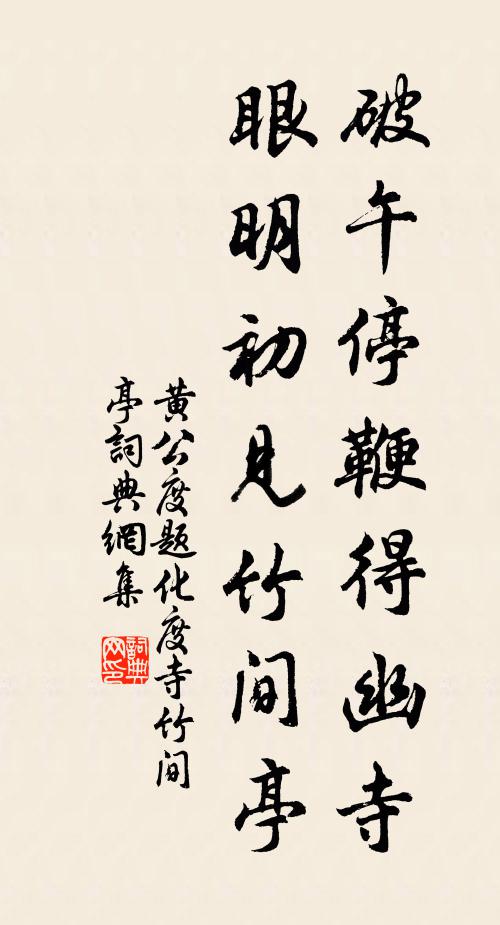 破午停鞭得幽寺
眼明初見竹間亭
黃公度題化度寺竹間
亭詞典網集
詞典
网印